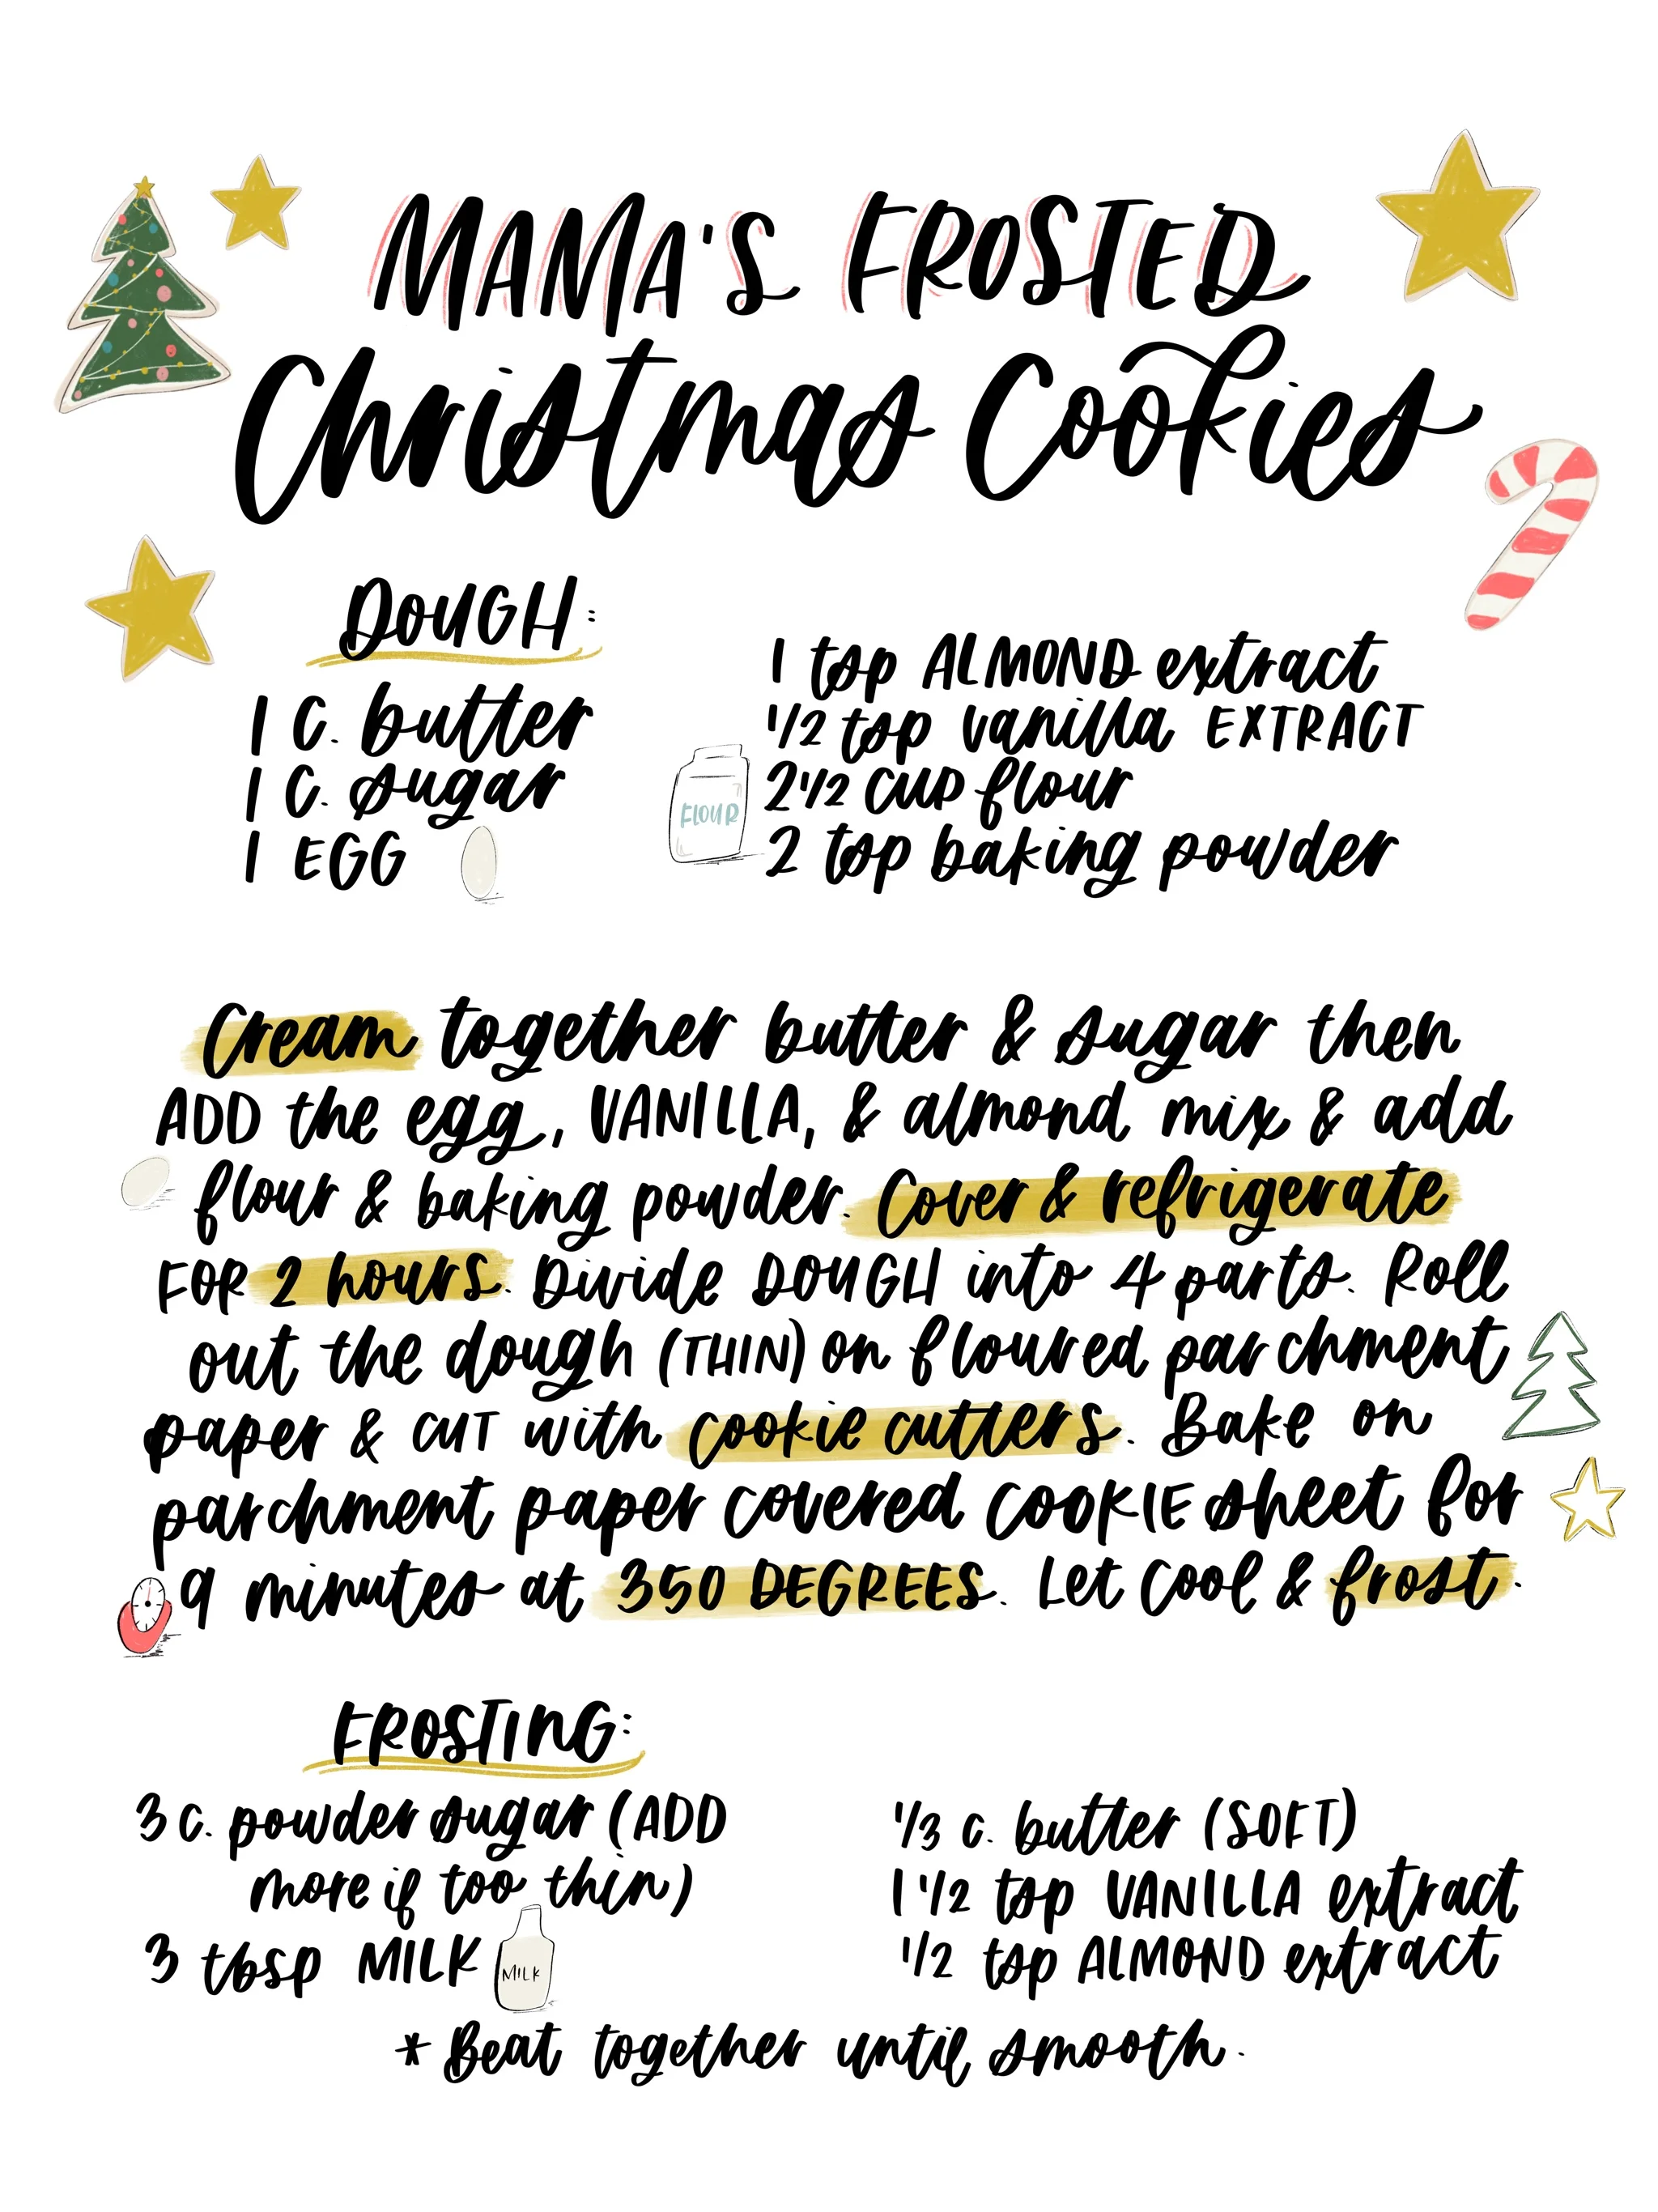 MAMA'S FROSTED
Christmas Cookies
DOUGH:
1 C. butter
1 C. sugar
1 EGG
1 tsp ALMOND extract
1/2 tsp vanilla EXTRACT
2 1/2 CUP flour
2 tsp baking powder
FLOUR
Cream together butter & sugar then
ADD the egg, VANILLA, & almond mix & add
flour & baking powder. Cover & refrigerate
FOR 2 hours. Divide DOUGH into 4 parts. Roll
out the dough (THIN) on floured parchment
paper & CUT with cookie cutters. Bake on
parchment paper covered COOKIE sheet for
9 minutes at 350 DEGREES. Let cool & frost.
FROSTING:
3 C. powder sugar (ADD
more if too thin)
3 tbsp MILK
MILK
1/3 C. butter (SOFT)
1 1/2 tsp VANILLA extract
1/2 tsp ALMOND extract
* Beat together until smooth.